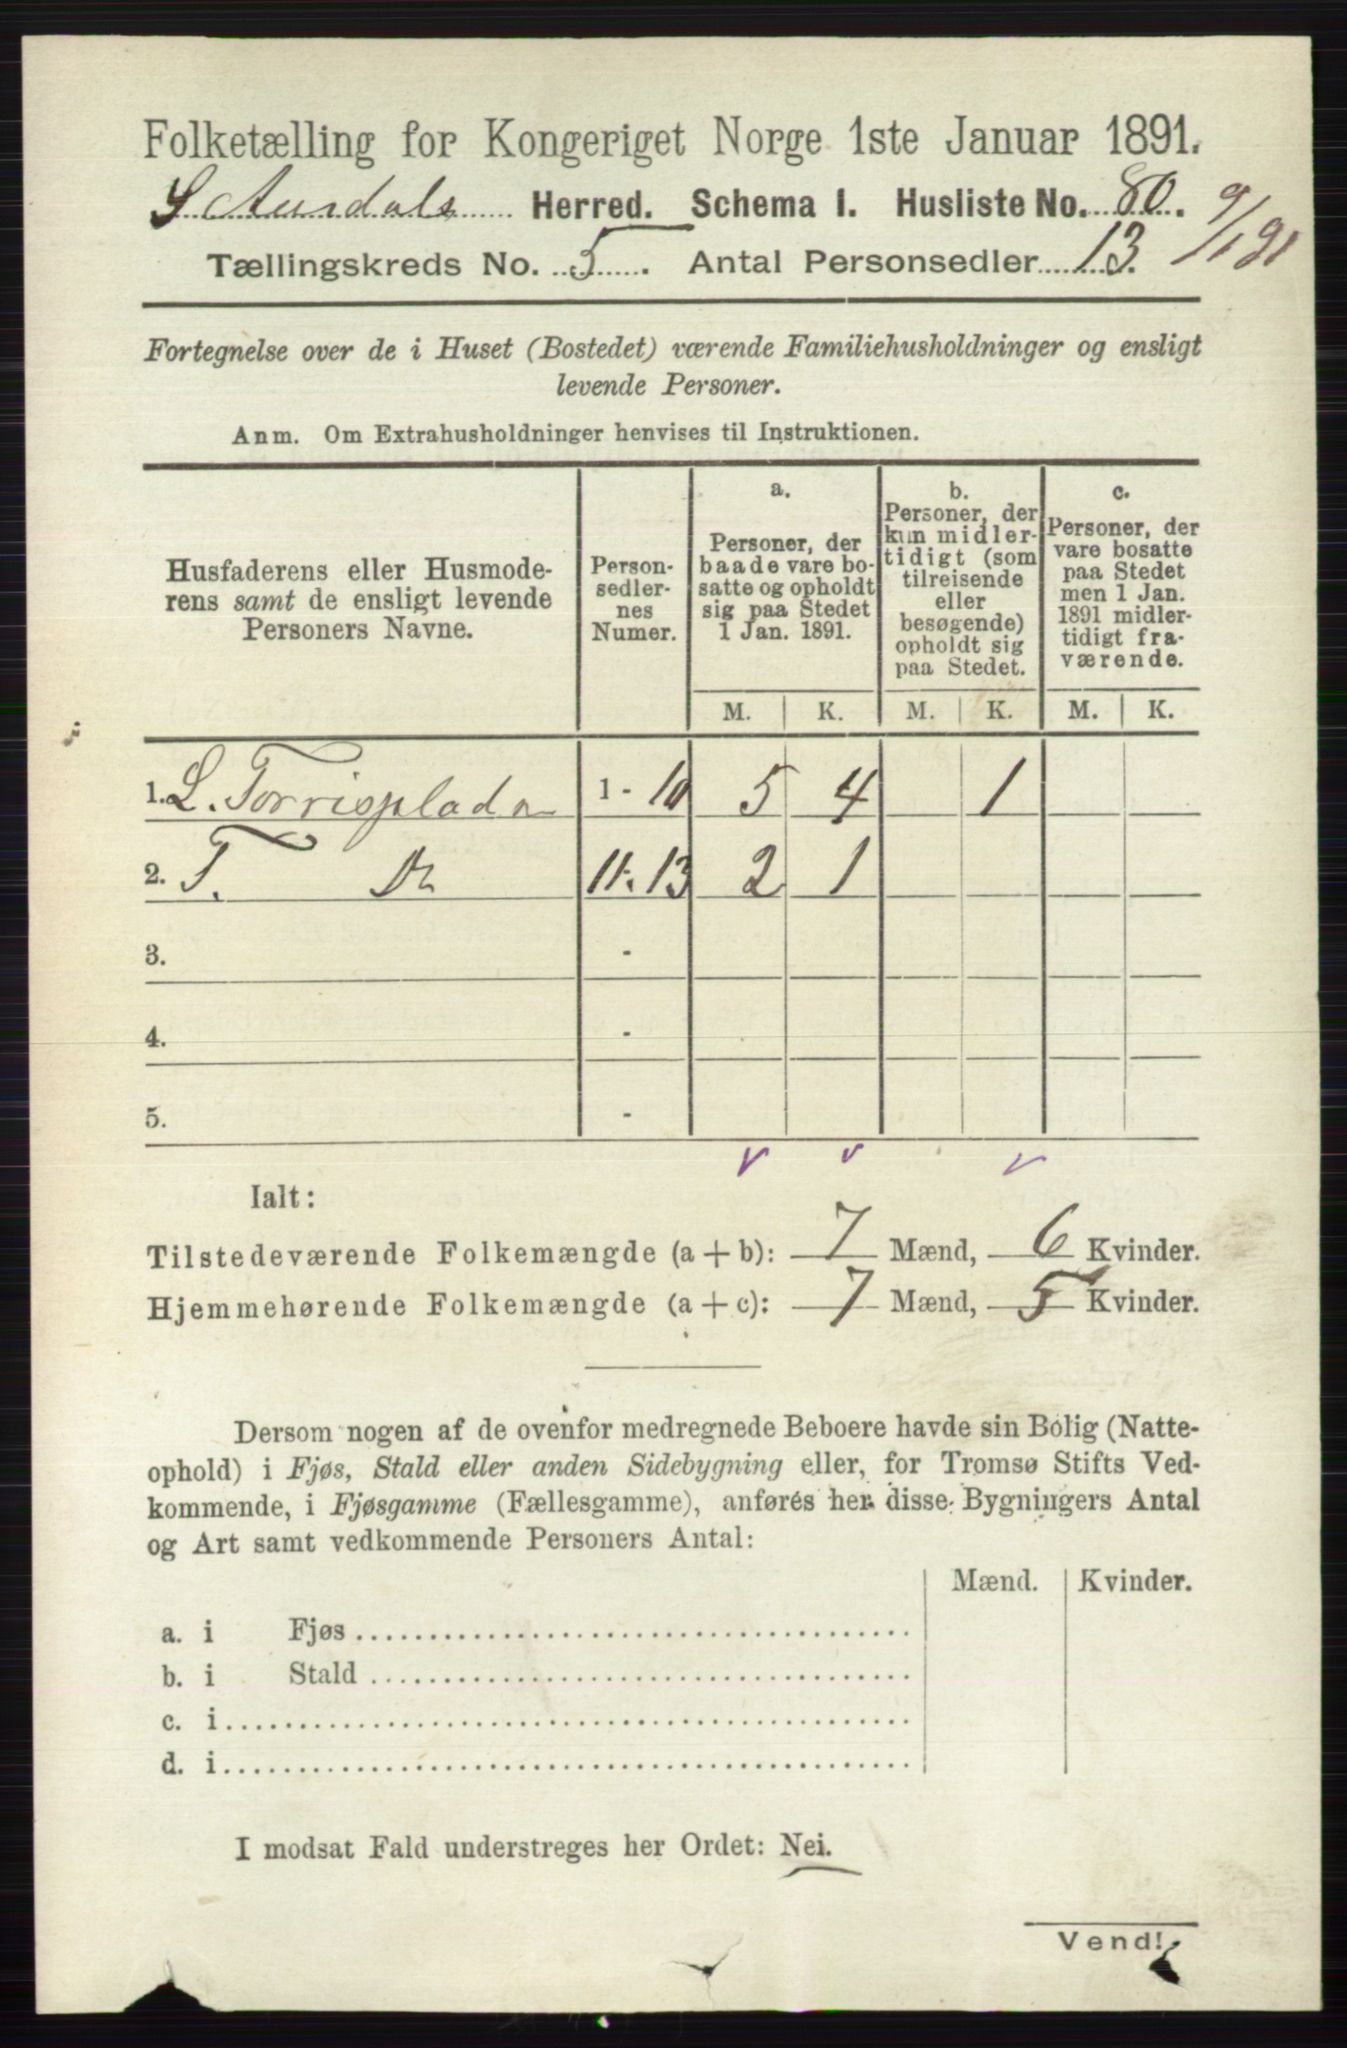 Folketælling for Kongeriget Norge 1ste Januar 1891.
S Aurdals Herred. Schema I. Husliste No. 80.
9/1 91
Tællingskreds No. 5. Antal Personsedler 13.
Fortegnelse over de i Huset (Bostedet) værende Familiehusholdninger og ensligt
levende Personer.
Anm. Om Extrahusholdninger henvises til Instruktionen.
Husfaderens eller Husmode-
rens samt de ensligt levende
Personers Navne.
Person-
sedler-
nes
Numer.
a.
Personer, der
baade vare bo-
satte og opholdt
sig paa Stedet
1 Jan. 1891.
b.
Personer, der
kun midler-
tidigt (som
tilreisende
eller
besøgende)
opholdt sig
paa Stedet.
c.
Personer, der
vare bosatte
paa Stedet
men 1 Jan.
1891 midler-
tidigt fra-
værende.
M. K. M. K. M. K.
1. L. Torrisplads 1 - 10 5 4 1
2. T. Do 11-13 2 1
3. -
4. -
5. -
Ialt:
Tilstedeværende Folkemængde (a + b): 7 Mænd, 6 Kvinder.
Hjemmehørende Folkemængde (a + c): 7 Mænd, 5 Kvinder.
Dersom nogen af de ovenfor medregnede Beboere havde sin Bolig (Natte-
ophold) i Fjøs, Stald eller anden Sidebygning eller, for Tromsø Stifts Ved-
kommende, i Fjøsgamme (Fællesgamme), anføres her disse Bygningers Antal
og Art samt vedkommende Personers Antal:
Mænd. Kvinder.
a. i Fjøs
b. i Stald
c. i
d. i
I modsat Fald understreges her Ordet: Nei.
Vend!